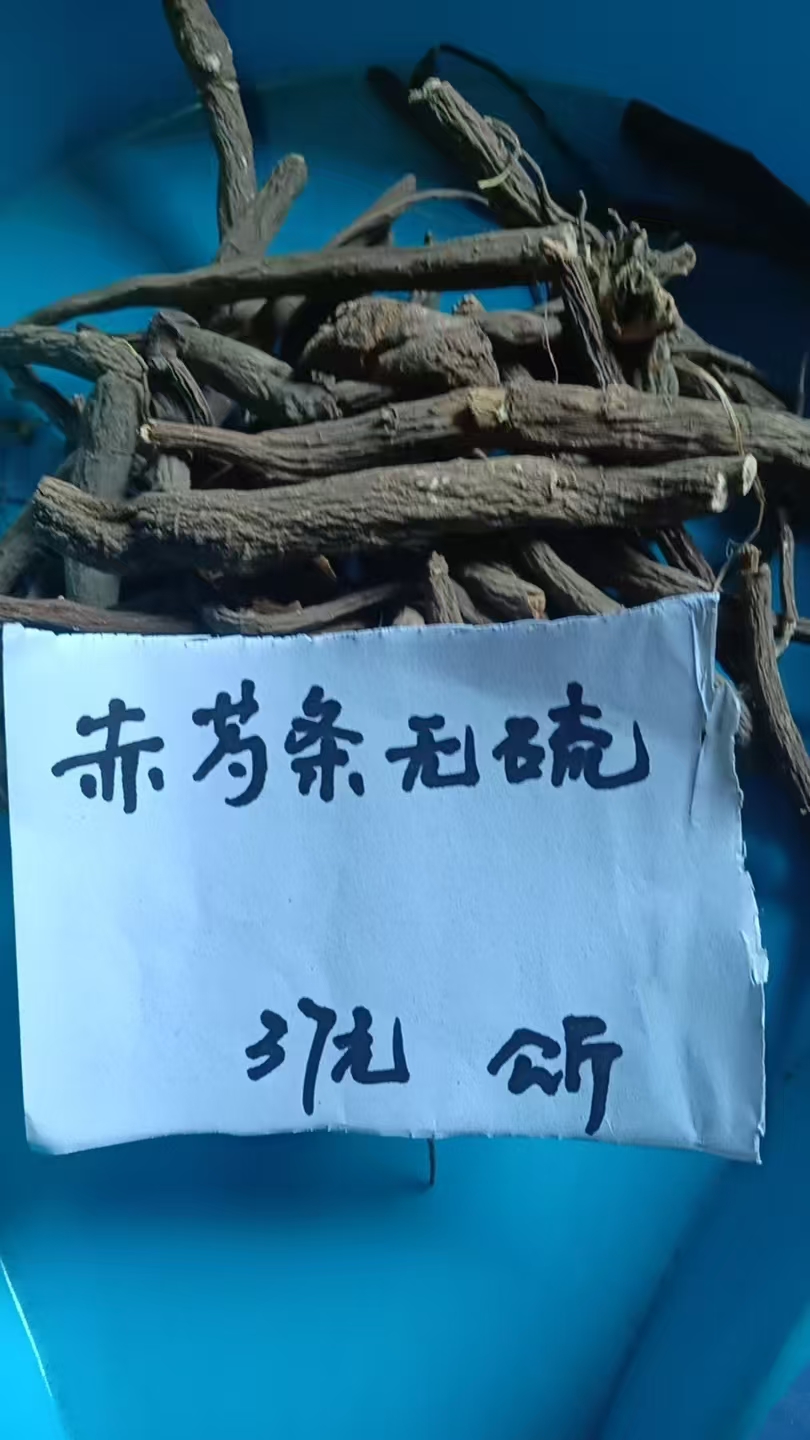 赤芍条无硫
37元 公斤